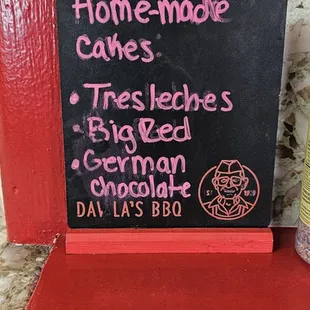 Home-made
Cakes:
• Tresleches
• Big Red
• German
chocolate
LA'S BBQ